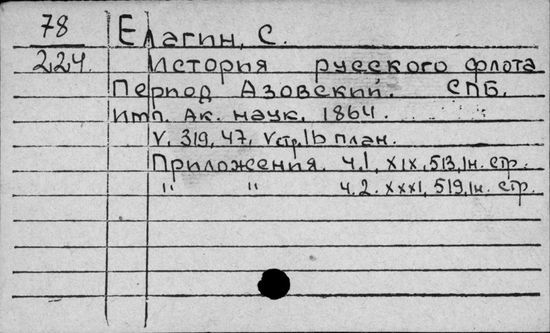 78
Елагин, С.
224.
История русского флота
Период Азовский. СПБ.
имп. Ак. наук, 1864.
V, 319, 47, V стр. 16 план.
Приложения. ч.1, XIX, 513, 1н. стр.
" " ч.2. XXXI, 519, 1н. стр.